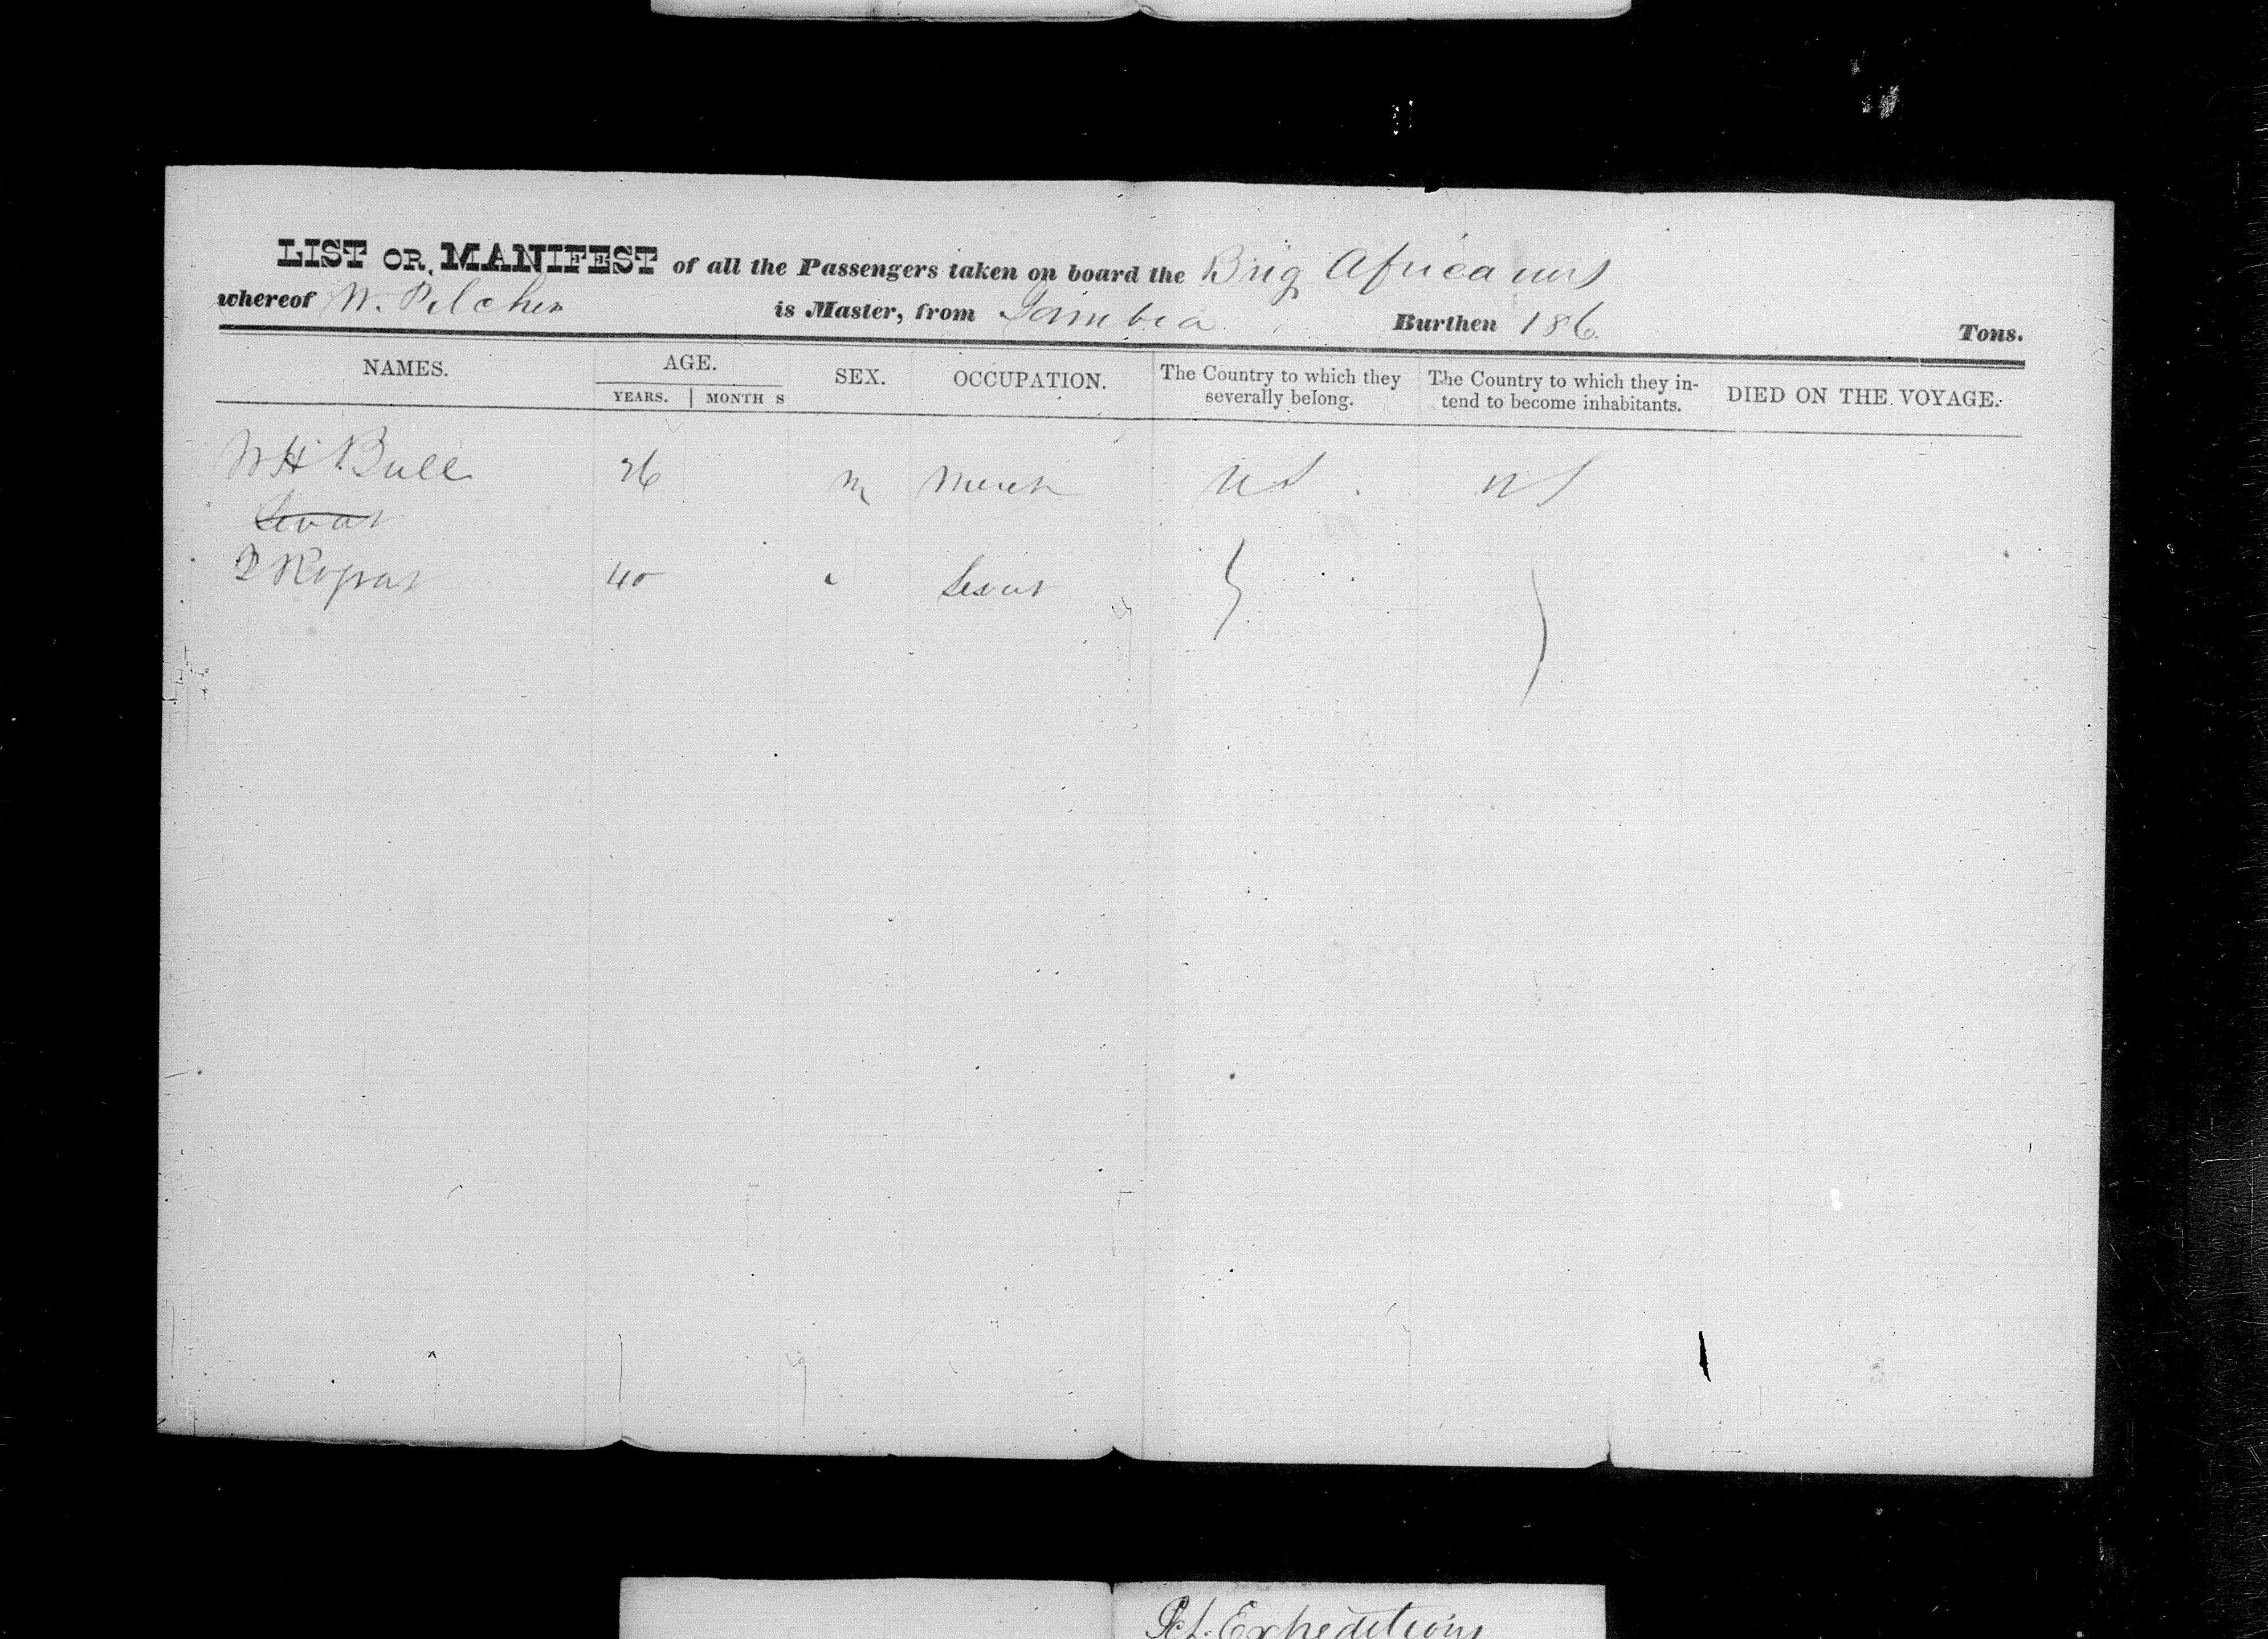 LIST OR MANIFEST of all the Passengers taken on board the Brig Africanus
whereof W. Pilcher is Master, from Gambia Burthen 186 Tons.
NAMES. AGE. SEX. OCCUPATION. The Country to which they severally belong. The Country to which they intend to become inhabitants. DIED ON THE VOYAGE.
YEARS. MONTHS
W H Bull 26 m Merch US US
Servt
40 " Servt
Sch. Expeditious